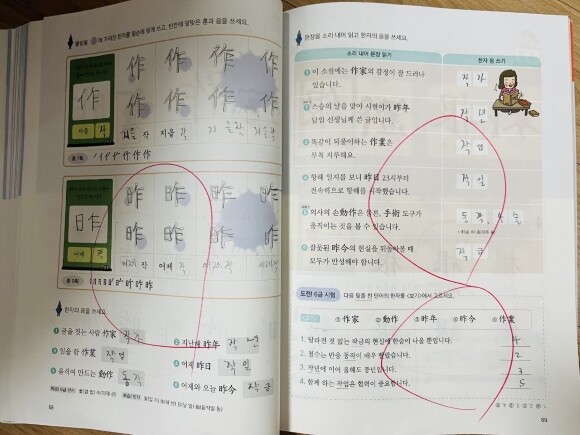 에 가려진 한자를 필순에 맞게 쓰고, 빈칸에 알맞은 훈과 음을 쓰세요.
作 作 作 作 作
지을 작
지을 작 지을 작 지 을작 지을작
총 7획
昨 昨 昨 昨 昨
어제 작
어제 작 어제 작 어제 작 어제 작
총 9획
한자의 음을 쓰세요.
1 글을 짓는 사람 作家 작가
2 지난해 昨年 작 년
3 일을 함 作業 작업
4 어제 昨日 작 일
5 움직여 만드는 動作 동작
6 어제와 오늘 昨今 작 금
68
문장을 소리 내어 읽고 한자의 음을 쓰세요.
소리 내어 문장 읽기
한자 음 쓰기
1 이 소설에는 作家의 감정이 잘 드러나
있습니다.
작 가
2 스승의 날을 맞아 시현이가 昨年
담임 선생님께 쓴 글입니다.
작 년
3 똑같이 되풀이하는 作業은
무척 지루해요.
작 업
4 항해 일지를 보니 昨日 23시부터
전속력으로 항해를 시작했습니다.
작 일
5 의사의 손動作은 물론, 手術 도구가
움직이는 것을 볼 수 있습니다.
동작, 수술
6 잘못된 昨今의 현실을 뒤돌아볼 때
모두가 반성해야 합니다.
작 금
도전! 6급 시험
다음 밑줄 친 단어의 한자를 <보기>에서 고르세요.
①作家 ②動作 ③昨年 ④昨今 ⑤作業
1. 달라진 것 없는 작금의 현실에 한숨이 나올 뿐입니다. 4
2. 철수는 반응 동작이 매우 빨랐습니다. 2
3. 작년에 이어 올해도 풍년입니다. 3
4. 함께 하는 작업은 협력이 중요합니다. 5
69